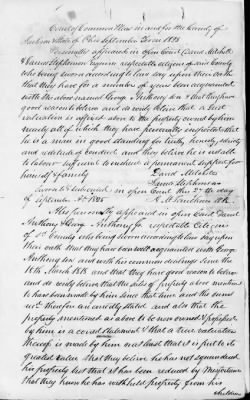 Court of Common Pleas in and for the County of
State of Ohio September Term 1835
Personally appeared in open Court David Mitchell
& James Stephenson respectable citizens of said County
who being sworn according to law say upon their oath
that they have for a number of years been acquainted
with the above named George Anthony Sen & that they have
good reason to believe and do verily believe that a just
valuation is affixed above to the property owned by him
nearly all of which they have personally inspected that
he is a man in good standing for truth, honesty, sobriety
and upright conduct and they believe he is unable
to labour sufficient to render a permanent support for
himself & family
David Mitchell
James Stephenson
Sworn to & subscribed in open Court the 2nd day
of September A.D. 1835
Also personally appeared in open Court Daniel
Anthony & George Anthony Jr respectable Citizens
of County who being sworn according to law say upon
their oath that they have been well acquainted with George
Anthony Sen and with his common dealings since the
18th March 1818 and that they have good reason to believe
and do verily believe that the sale of property above mentioned
to have been made by him since that time and the sums
rec'd therefor are correctly stated and also that the
property mentioned as above to be now owned & possessed
by him is a correct statement & that a true valuation
thereof is made by him, at least that it is put to its
greatest value that they believe he has not squandered
his property but that it has been reduced by misfortune
that they know he has withheld property from his
children